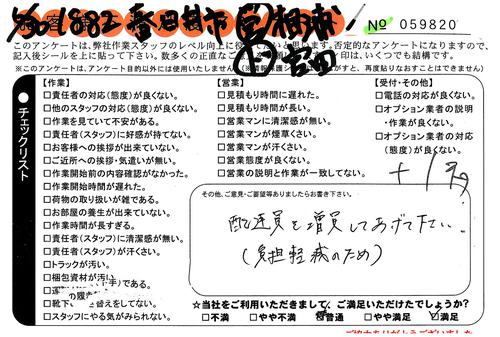 № 059820
このアンケートは、弊社作業スタッフのレベル向上に
否定的なアンケートになりますので、
記入後シールを上に貼って下さい。
印は、いくつでも結構です。
※このアンケートは、アンケート目的以外には使用いたしません
再度貼りなおすことはできません
●チェックリスト
【作業】
□責任者の対応(態度)が良くない。
□他のスタッフの対応(態度)が良くない。
□作業を見ていて不安がある。
□責任者(スタッフ)に好感が持てない。
□お客様への挨拶が出来ていない。
□ご近所への挨拶・気遣いが無い。
□作業開始前の内容確認がなかった。
□作業開始時間が遅れた。
□荷物の取り扱いが雑である。
□お部屋の養生が出来ていない。
□作業時間が長すぎる。
□責任者(スタッフ)に清潔感が無い。
□責任者(スタッフ)が汗くさい。
□トラックが汚い。
□梱包資材が汚い。
である。
□靴下
を替えをしてない。
□スタッフにやる気がみられない。
【営業】
□見積もり時間に遅れた。
□見積もり時間が長い。
□営業マンに清潔感が無い。
□営業マンが煙草くさい。
□営業マンが汗くさい。
□営業態度が良くない。
□営業の説明と作業が一致してない。
【受付・その他】
□電話の対応が良くない。
□オプション業者の説明・作業が良くない。
□オプション業者の対応(態度)が良くない。
その他、ご意見・ご要望等ありましたらお書き下さい。
配達員を増員してあげて下さい。
(負担軽減のため)
☆当社をご利用いただきまして、ご満足いただけてしょうか?
□不満 □やや不満 普通 □やや満足 満足
ご協力ありがとうございました